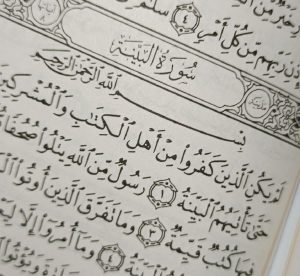 رَبِّهِم مِّن كُلِّ أَمْرٍ ٤ سَلَٰمٌ
سُورَةُ البَيِّنَةِ
بِسْمِ اللَّهِ الرَّحْمَٰنِ الرَّحِيمِ
لَمْ يَكُنِ الَّذِينَ كَفَرُوا مِنْ أَهْلِ الْكِتَٰبِ وَالْمُشْرِكِينَ
حَتَّىٰ تَأْتِيَهُمُ الْبَيِّنَةُ ١ رَسُولٌ مِّنَ اللَّهِ يَتْلُوا صُحُفًا
فِيهَا كُتُبٌ قَيِّمَةٌ ٣ وَمَا تَفَرَّقَ الَّذِينَ أُوتُوا
الْبَيِّنَةُ ٤ وَمَا أُمِرُوا إِلَّا
وَيُؤْتُوا